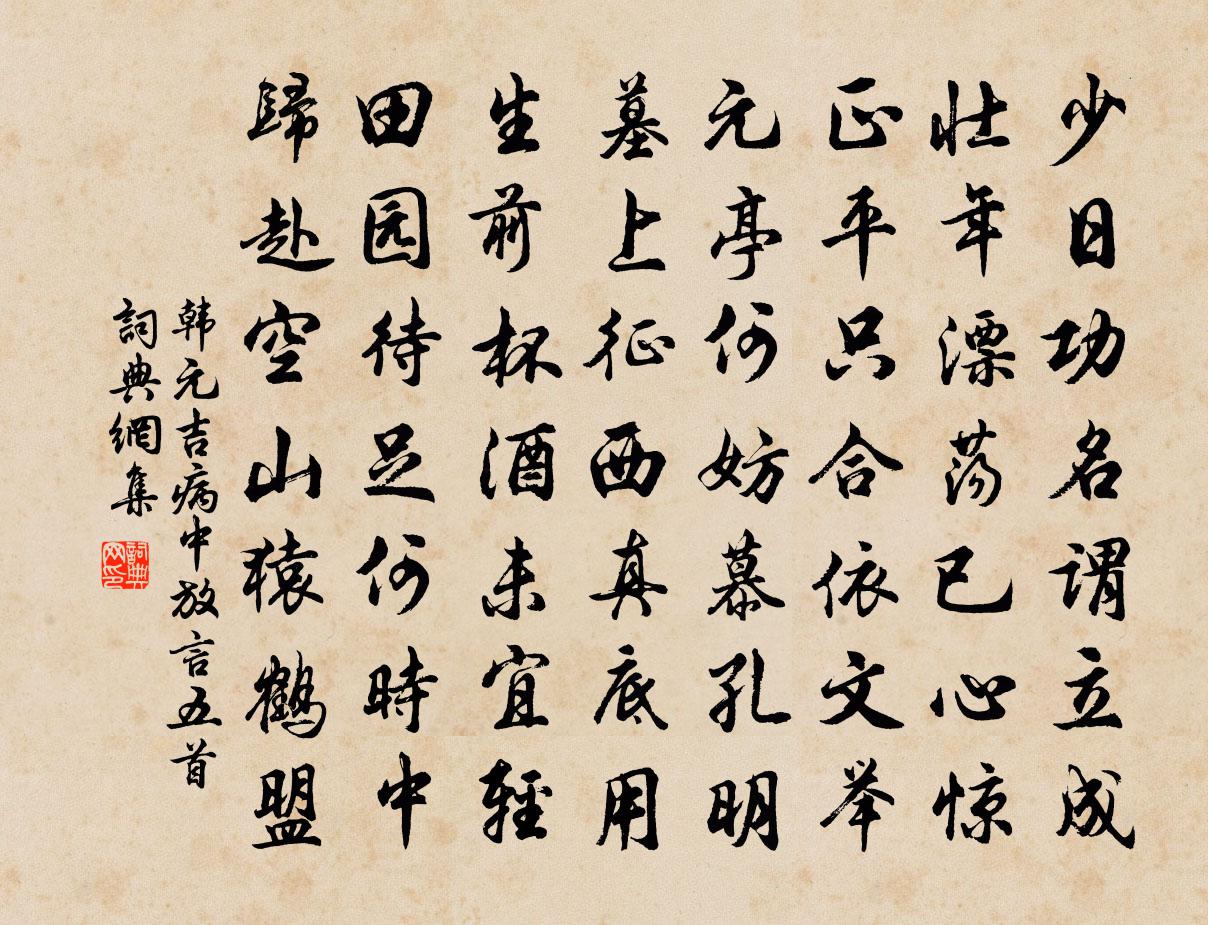 少日功名谓立成
壮年漂荡已心惊
正平只合依文举
元亭何妨慕孔明
墓上征西真底用
生前杯酒未宜轻
田园待足何時中
歸赴空山猿鶴盟
韩元吉病中放言五首
詞典網集
詞典网印